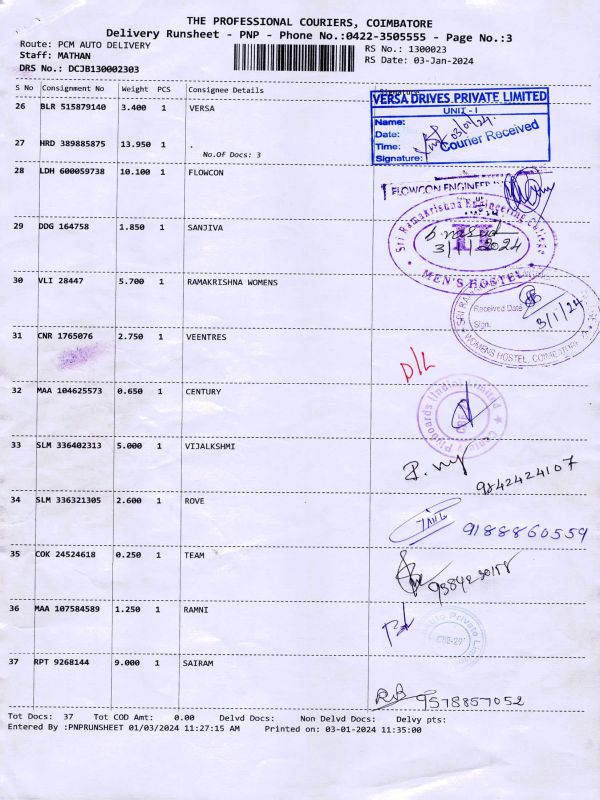 THE PROFESSIONAL COURIERS, COIMBATORE
Delivery Runsheet - PNP - Phone No.:0422-3505555 - Page No.:3
Route: PCM AUTO DELIVERY RS No.: 1300023
Staff: MATHAN RS Date: 03-Jan-2024
DRS No.: DCJB130002303
S No Consignment No Weight PCS Consignee Details Signature
26 BLR 515879140 3.400 1 VERSA
VERSA DRIVES PRIVATE LIMITED
UNIT - I
Name:
Date: 03/01/24
Time: Courier Received
Signature:
27 HRD 389885875 13.950 1 .
No.Of Docs: 3
28 LDH 600059738 10.100 1 FLOWCON
FLOWCON ENGINEER
29 DDG 164758 1.850 1 SANJIVA
Sri Ramakrishna Engineering College
3/1/2024
MEN'S HOSTEL
30 VLI 28447 5.700 1 RAMAKRISHNA WOMENS
Received Date
Sign.
3/1/24
WOMENS HOSTEL, COIMBATORE
31 CNR 1765076 2.750 1 VEENTRES
D/L
32 MAA 104625573 0.650 1 CENTURY
33 SLM 336402313 5.000 1 VIJALKSHMI
9842424107
34 SLM 336321305 2.600 1 ROVE
9188860559
35 COK 24524618 0.250 1 TEAM
36 MAA 107584589 1.250 1 RAMNI
37 RPT 9268144 9.000 1 SAIRAM
RB 9578857052
Tot Docs: 37 Tot COD Amt: 0.00 Delvd Docs: Non Delvd Docs: Delvy pts:
Entered By :PNPRUNSHEET 01/03/2024 11:27:15 AM Printed on: 03-01-2024 11:35:00